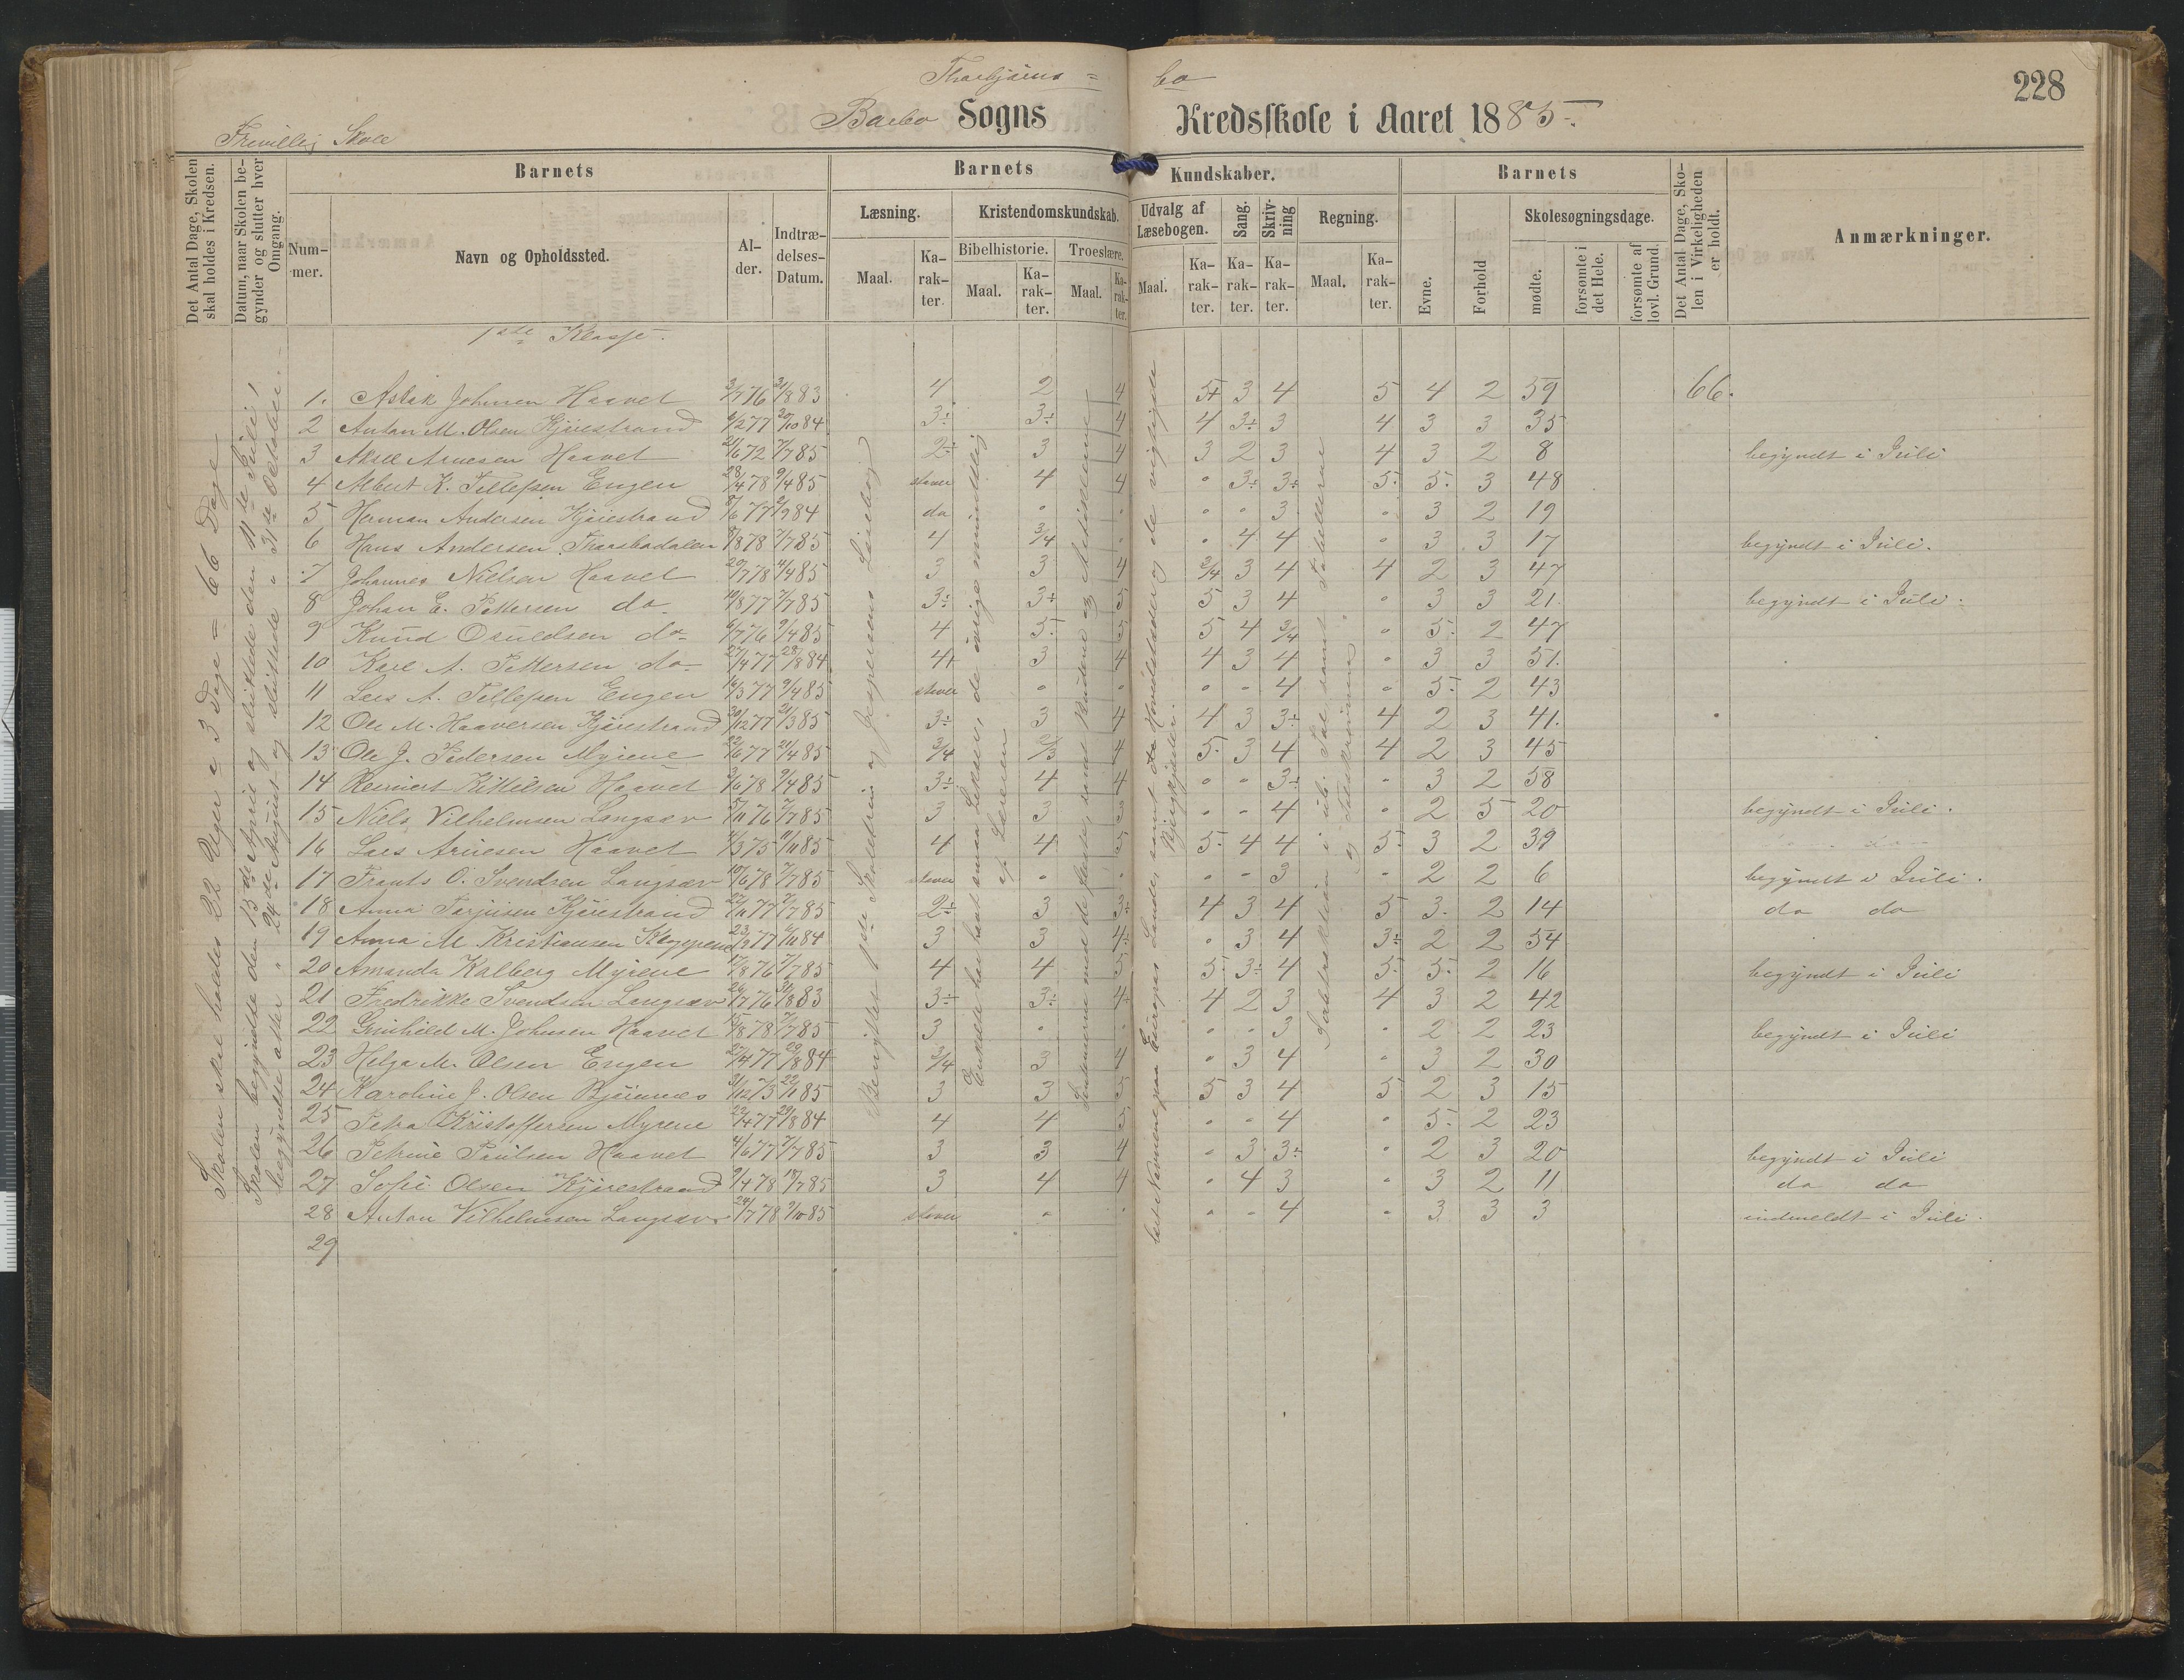 228
Barbo Sogns Kredsskole i Aaret 1885.
Frivillig Skole
Det Antal Dage, Skolen skal holdes i Kredsen.
Datum, naar Skolen begynder og slutter hver Omgang.
Barnets
Nummer.
Navn og Opholdssted.
Alder.
Indtrædelses-Datum.
Barnets Kundskaber.
Læsning.
Maal.
Karakter.
Kristendomskundskab.
Bibelhistorie.
Maal.
Karakter.
Troeslære.
Maal.
Karakter.
Udvalg af Læsebogen.
Maal.
Karakter.
Sang.
Karakter.
Skrivning
Karakter.
Regning.
Maal.
Karakter.
Barnets
Evne.
Forhold
Skolesøgningsdage.
mødte.
forsømte i det Hele.
forsømte af lovl. Grund.
Det Antal Dage, Skolen i Virkeligheden er holdt.
Anmærkninger.
Skolen skal holdes 22 Uger a 3 Dage = 66 Dage
Skolen begyndte den 13de April og sluttede den 11te Juli,
begyndte atter " 24de August og sluttede " 31te Oktober.
1ste Klasse.
1. Aslak Johnsen Haavet 3/7 76 31/8 83 4 2 4 5+ 3 4 5 4 2 59 66.
2 Anton M. Olsen Kjørestrand 6/2 77 20/10 84 3÷ 3÷ 4 4 3÷ 3 4 3 3 35
3 Aksel Arnesen Haavet 21/6 72 7/7 85 2÷ 3 4 3 2 3 4 3 2 8 begyndt i Juli
4 Albert K. Tellefsen Engen 28/4 78 9/4 85 staver 4 4 " 3÷ 3÷ 5. 5. 3 48
5 Herman Andersen Kjørestrand 8/6 77 2/9 84 do " " " " 3 " 3 2 19
6 Hans Andersen 8/8 78 7/7 85 4 3/4 " " 4 4 " 3 3 17 begyndt i Juli.
7 Johannes Nielsen Haavet 20/7 78 4/4 85 3 3 4 3/4 3 4 4 2 3 47
8 Johan E. Pettersen do 10/8 77 7/7 85 3÷ 3÷ 5 5 3 4 " 3 3 21. begyndt i Juli.
9 Knud Osuldsen do 6/7 76 9/4 85 4 5. 5 5 4 3/4 " 5. 2 47
10 Karl A. Pettersen do 27/4 77 28/8 84 4+ 3 4 4 3 4 " 3 3 51.
11 Lars A. Tellefsen Engen 16/3 77 9/4 85 staver " " " " 4 " 5. 2 43
12 Ole M. Haaversen Kjørestrand 30/12 77 21/3 85 3÷ 3 4 4 3 3÷ 4 2 3 41.
13 Ole J. Pedersen Myrene 22/6 77 21/4 85 3/4 2/3 4 5. 3 4 4 2 3 45
14 Reinert Kittilsen Haavet 3/6 78 9/4 85 3÷ 4 4 " " 3÷ " 3 2 58
15 Niels Vilhelmsen Langsæv 5/11 76 7/7 85 3 3 3 " " 4 " 2 5 20 begyndt i Juli.
16 Lars Arnesen Haavet 4/3 75 11/11 85 4 4 5 5. 4 4 5. 3 2 39
17 Frants O. Svendsen Langsæv 10/6 78 7/7 85 staver " " " " 3 " 2 2 6 begyndt i Juli.
18 Anna Terjusen Kjørestrand 22/11 77 7/7 85 2÷ 3 3÷ 4 3 4 5 3. 2 14 do do
19 Anna M Kristiansen 23/9 77 6/11 84 3 3 4÷ " 3 4 3÷ 2 2 54
20 Amanda Kalberg Myrene 17/8 76 7/7 85 4 4 5 5. 3÷ 4 5. 5. 2 16 begyndt i Juli
21 Fredrikke Svendsen Langsæv 26/7 76 31/8 83 3÷ 3÷ 4÷ 4 2 3 4 3 2 42
22 Gunhild M. Johnsen Haavet 15/8 78 7/7 85 3 " " " " 3 " 2 2 23 begyndt i Juli
23 Helga M. Olsen Engen 27/4 77 29/8 84 3/4 3 4 " 3 4 " 3 2 30
24 Karoline J. Olsen Bjønnes 31/12 73 22/1 85 3 3 5 5 3 4 5 2 3 15
25 Petra Kristoffersen Myrene 22/4 77 29/8 84 4 4 5 " " 4 " 5. 2 23
26 Petrine Paulsen Haavet 4/6 77 7/7 85 3 3 4 " 3 3÷ " 2 3 20 begyndt i Juli
27 Sofie Olsen Kjørestrand 9/4 78 18/7 85 3 4 4 " 4 3 " 3 2 11 do do
28 Anton Vilhelmsen Langsæv 24/7 78 9/10 85 staver " " " " 4 " 3 3 3 indmeldt i Juli.
29
Benyttet 1ste Skoletrin og Jespersens Læsebog
Enkelte har havt smaa Lektier, de øvrige mundtlig af Læreren
best. Navnene paa Europas Lande, samt Hovedstæder og de vigtigste Bjergkjæder.